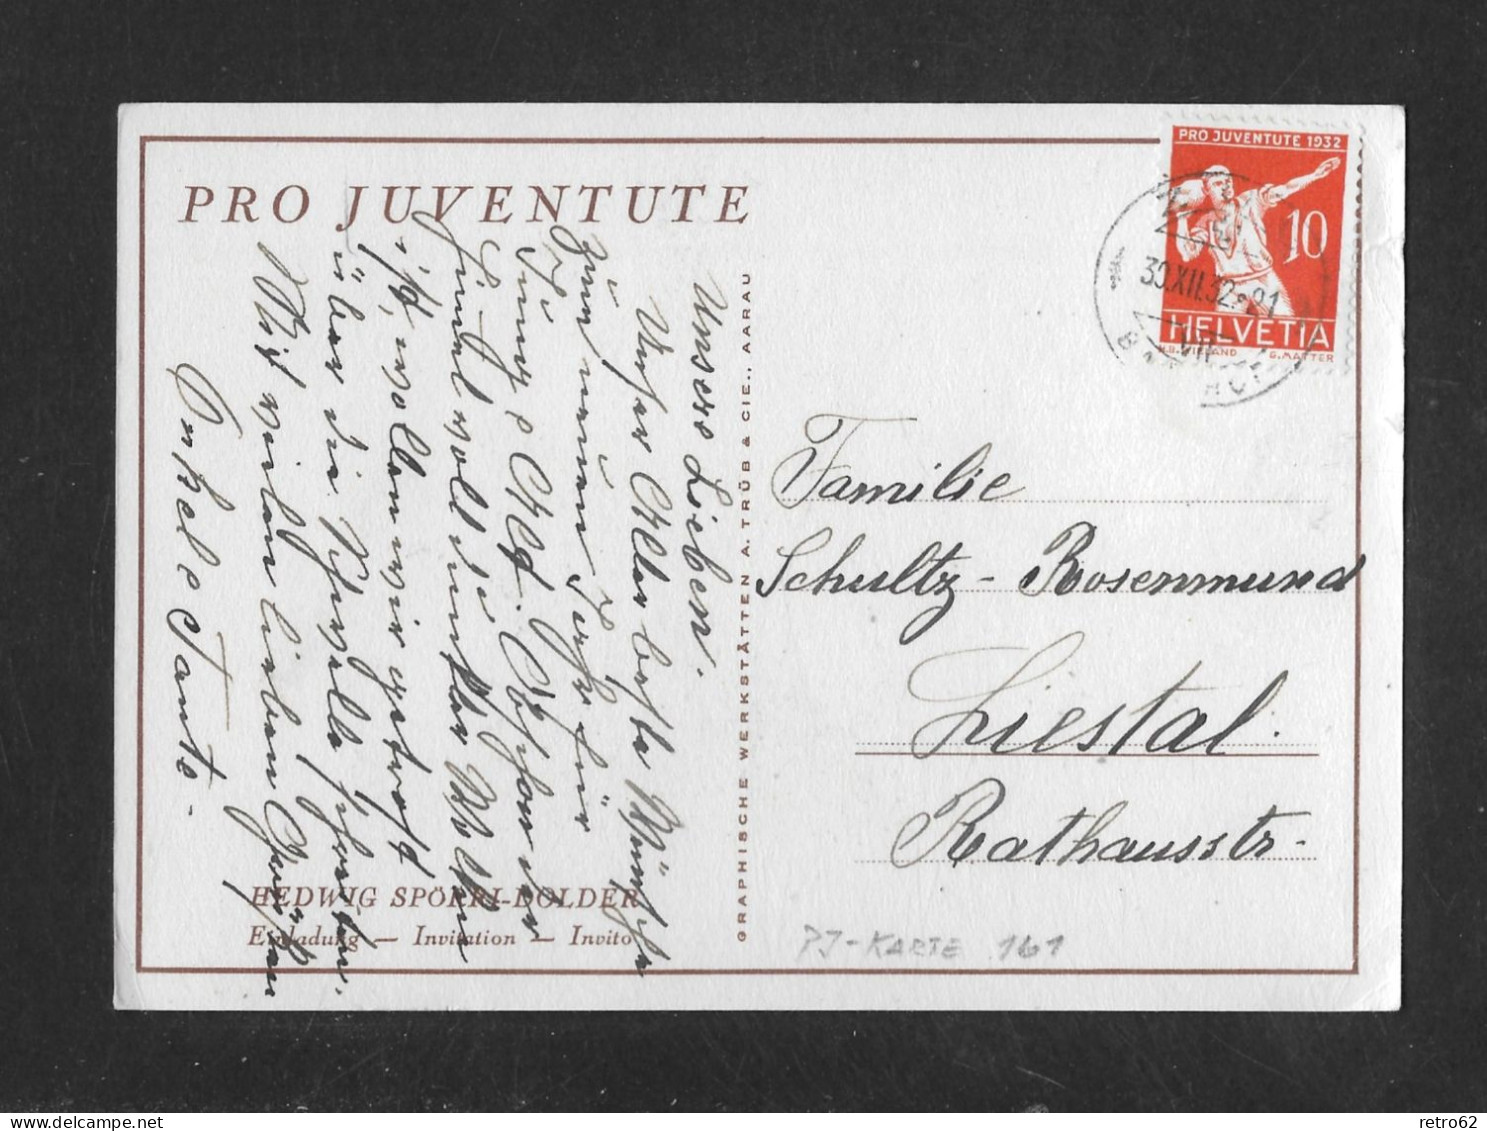 PRO JUVENTUTE
Unsere Lieben.
Unser Aller beste Wünsche
zum neuen Jahr für
Jung & Alt.
ist, wollen wir getrost
über die Schwelle schreiten.
Mit vielen lieben Grüssen
Onkel & Tante.
HEDWIG SPÖRRI-DOLDER
Einladung — Invitation — Invito
GRAPHISCHE WERKSTÄTTEN A. TRÜB & CIE., AARAU
PRO JUVENTUTE 1932
10
HELVETIA
G. MATTER
30.XII.32
VII
Familie
Schultz - Rosenmund
Liestal.
Rathausstr.
PJ-KARTE 161
retro62